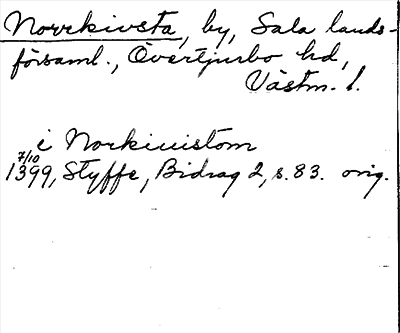 Norrkivsta, by, Sala lands-
församl., Övertjurbo hd,
Västm. l.
i Norkiuistom
7/10
1399, Styffe, Bidrag 2, s. 83. orig.